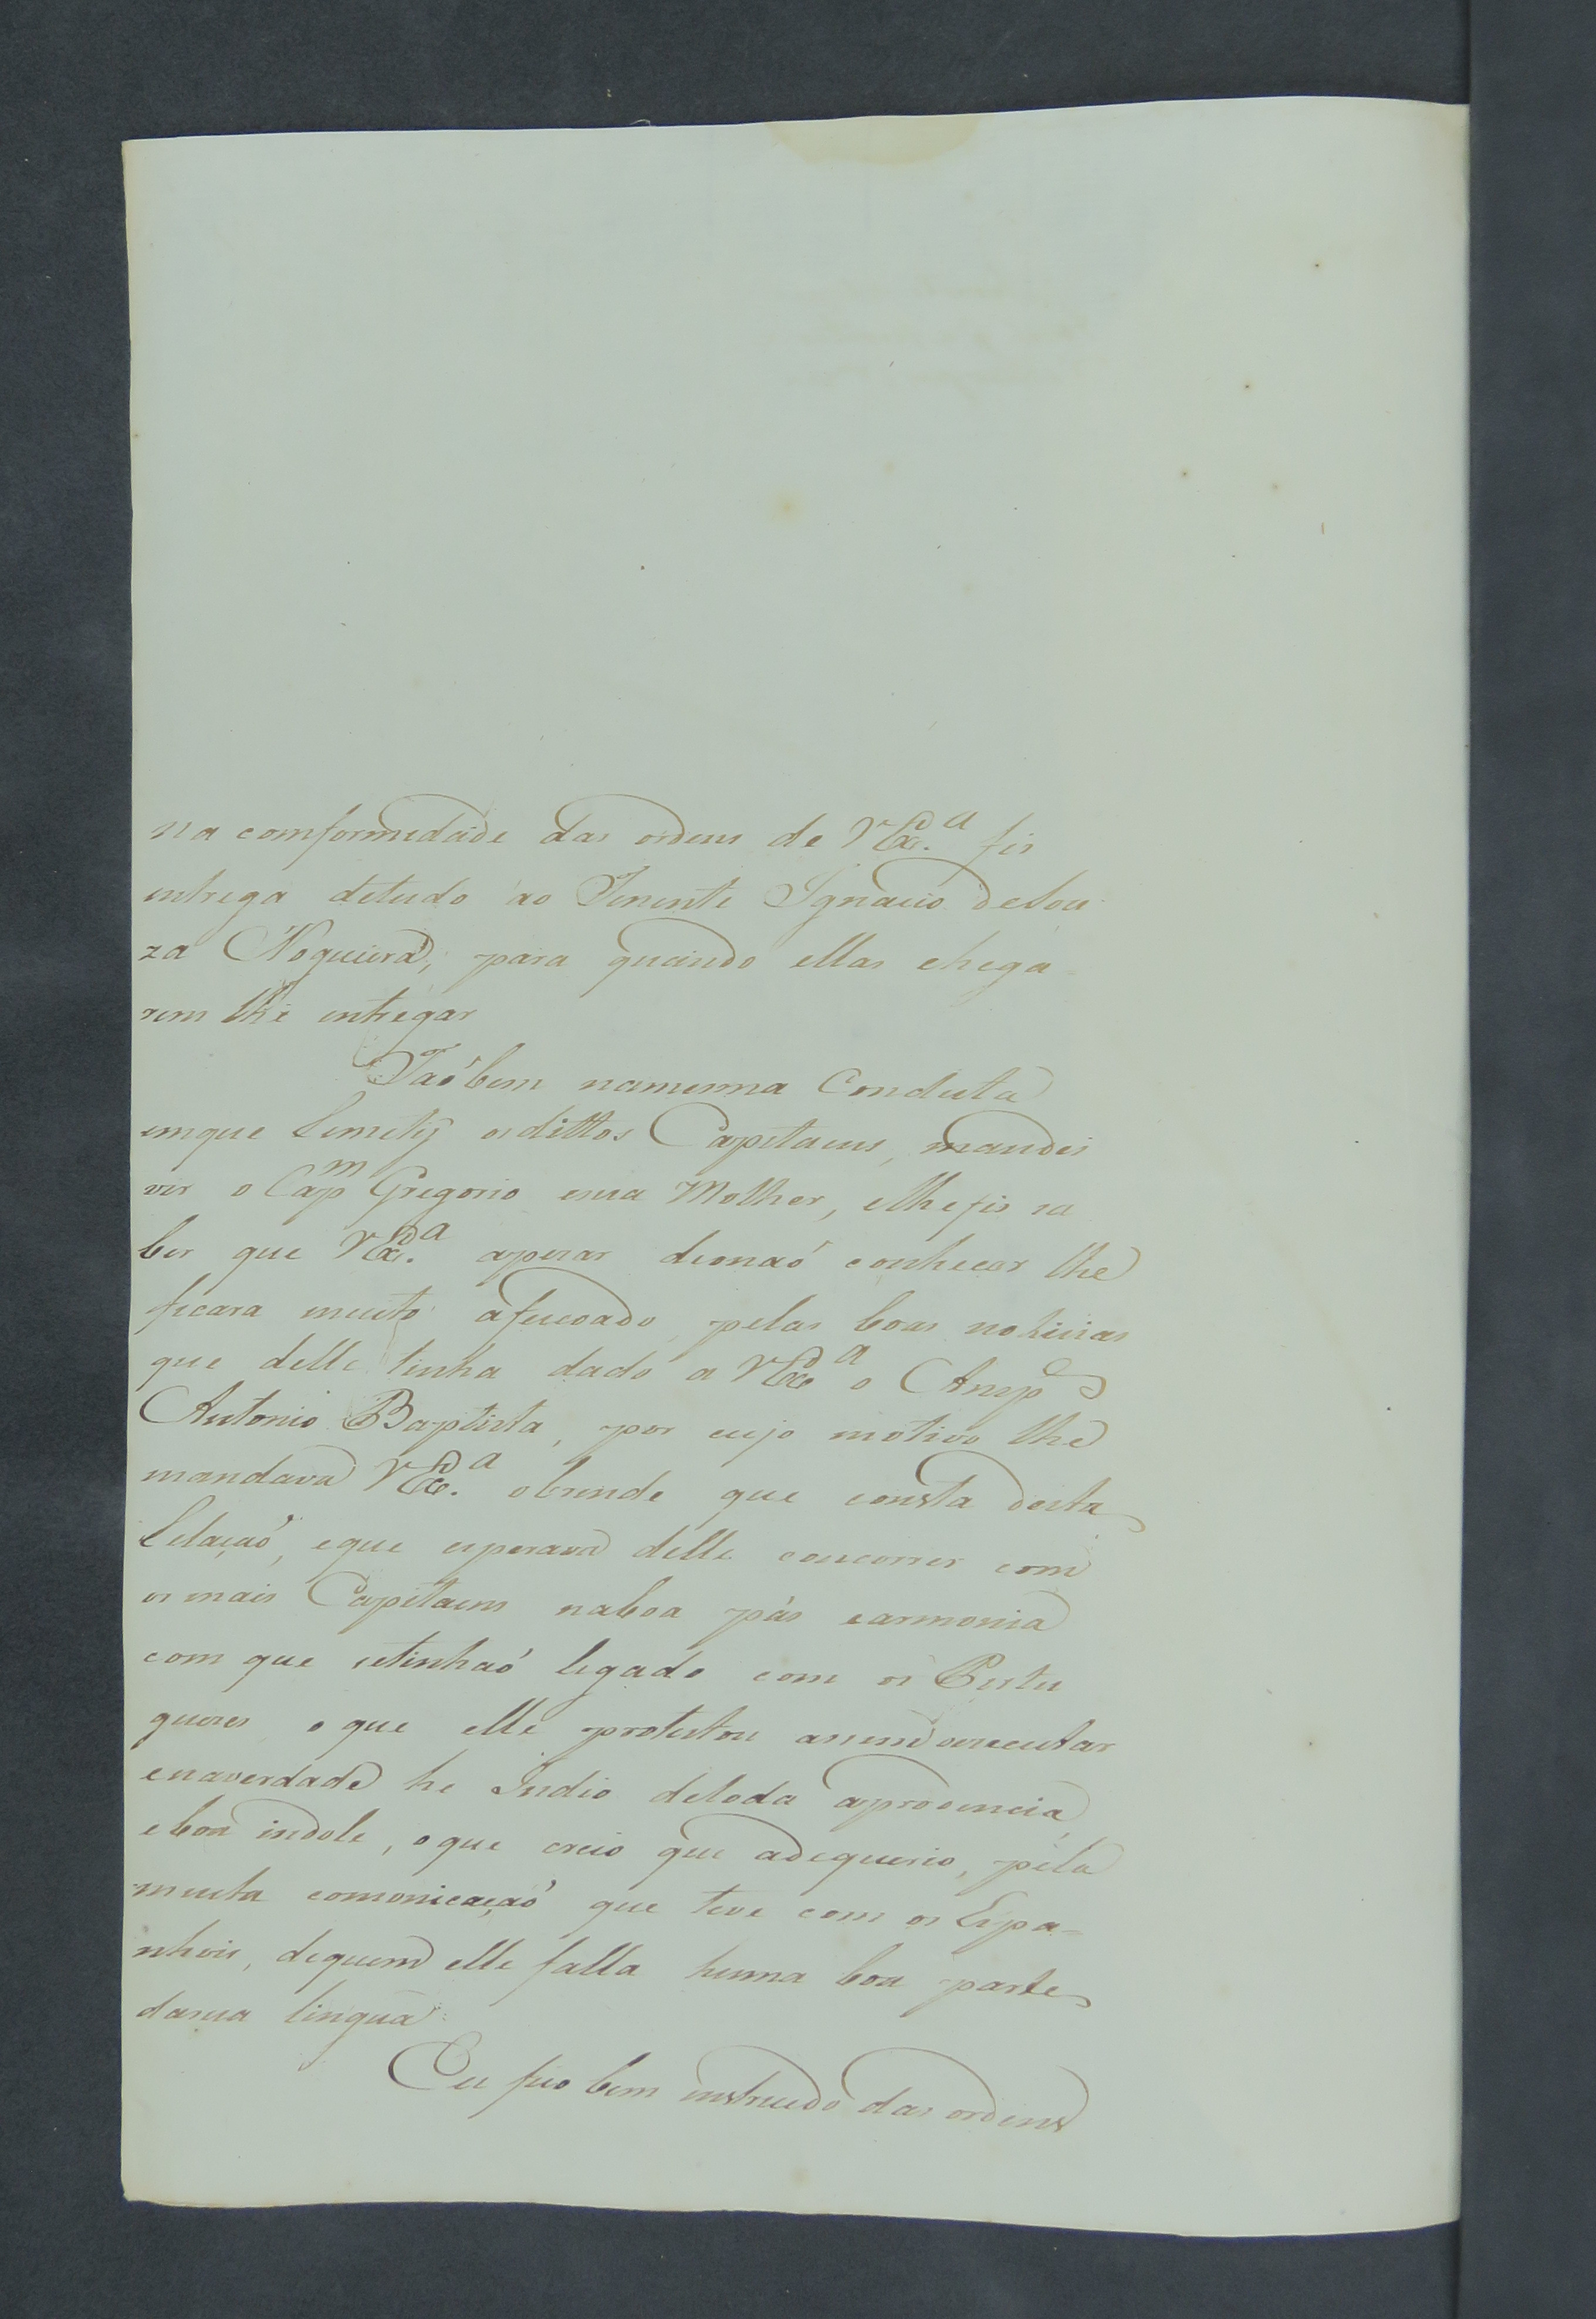 na comformidade das ordens de VEx.ª fis
entrega detudo ao Tenente Ignacio deSou
za Nogueira, para quando ellas chega
rem lhe entregar
Taõbem namesma Conduta
emque Remetij osdittos Capitaens, mandei
vir o Capᵐ Gregorio esua Molher, elhefis sa
ber que VEx.ª apesar deonaõ conhecer lhe
ficara muito afeicoado, pelas boas noticias
que delle tinha dado a VExª o Ansp
Antonio Baptista, por cujo motivo lhe
mandava VEx.ª obrinde que consta desta
Relaçaõ, eque esperava delle concorrer com
os mais Capitaens naboa pás earmonia
com que setinhaõ legado com os Portu
guezes o que elle protestou asim executar
enaverdade he Indio detoda aprodencia,
eboa indole, oque creio que adequerio, pela
muita comonicaçaõ que teve com os Espa=
nhois, dequem elle falla huma boa parte
dasua lingua
Eu fico bem instruido das ordens